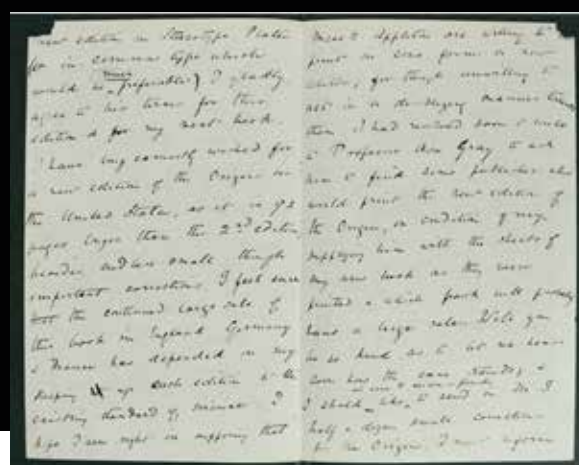 new edition in Stereotype Plates
(or in common type which
would be much preferable) I gladly
agree to his terms for this
edition & for my next book.
I have long earnestly wished for
a new edition of the Origin in
the United States, as it is 92
pages longer than the 2nd edition,
besides endless small though
important corrections. I feel sure
the continued large sale of
this book in England Germany
& France has depended on my
keeping up each edition to the
existing standard of science. I
hope I am right in supposing that
Messrs Appleton are willing to
print in some form a new
edition, for though unwilling to
act in a disobliging manner towards
them I had resolved soon to write
to Professor Asa Gray to ask
him to find some publisher who
would print the new edition of
the Origin, on condition of my
supplying him with the sheets of
my new book as they were
printed & which book will probably
have a large sale. Will you
be so kind as to let me hear
how the case stands; &
I should like to send in
half a dozen small corrections
for the Origin. I must